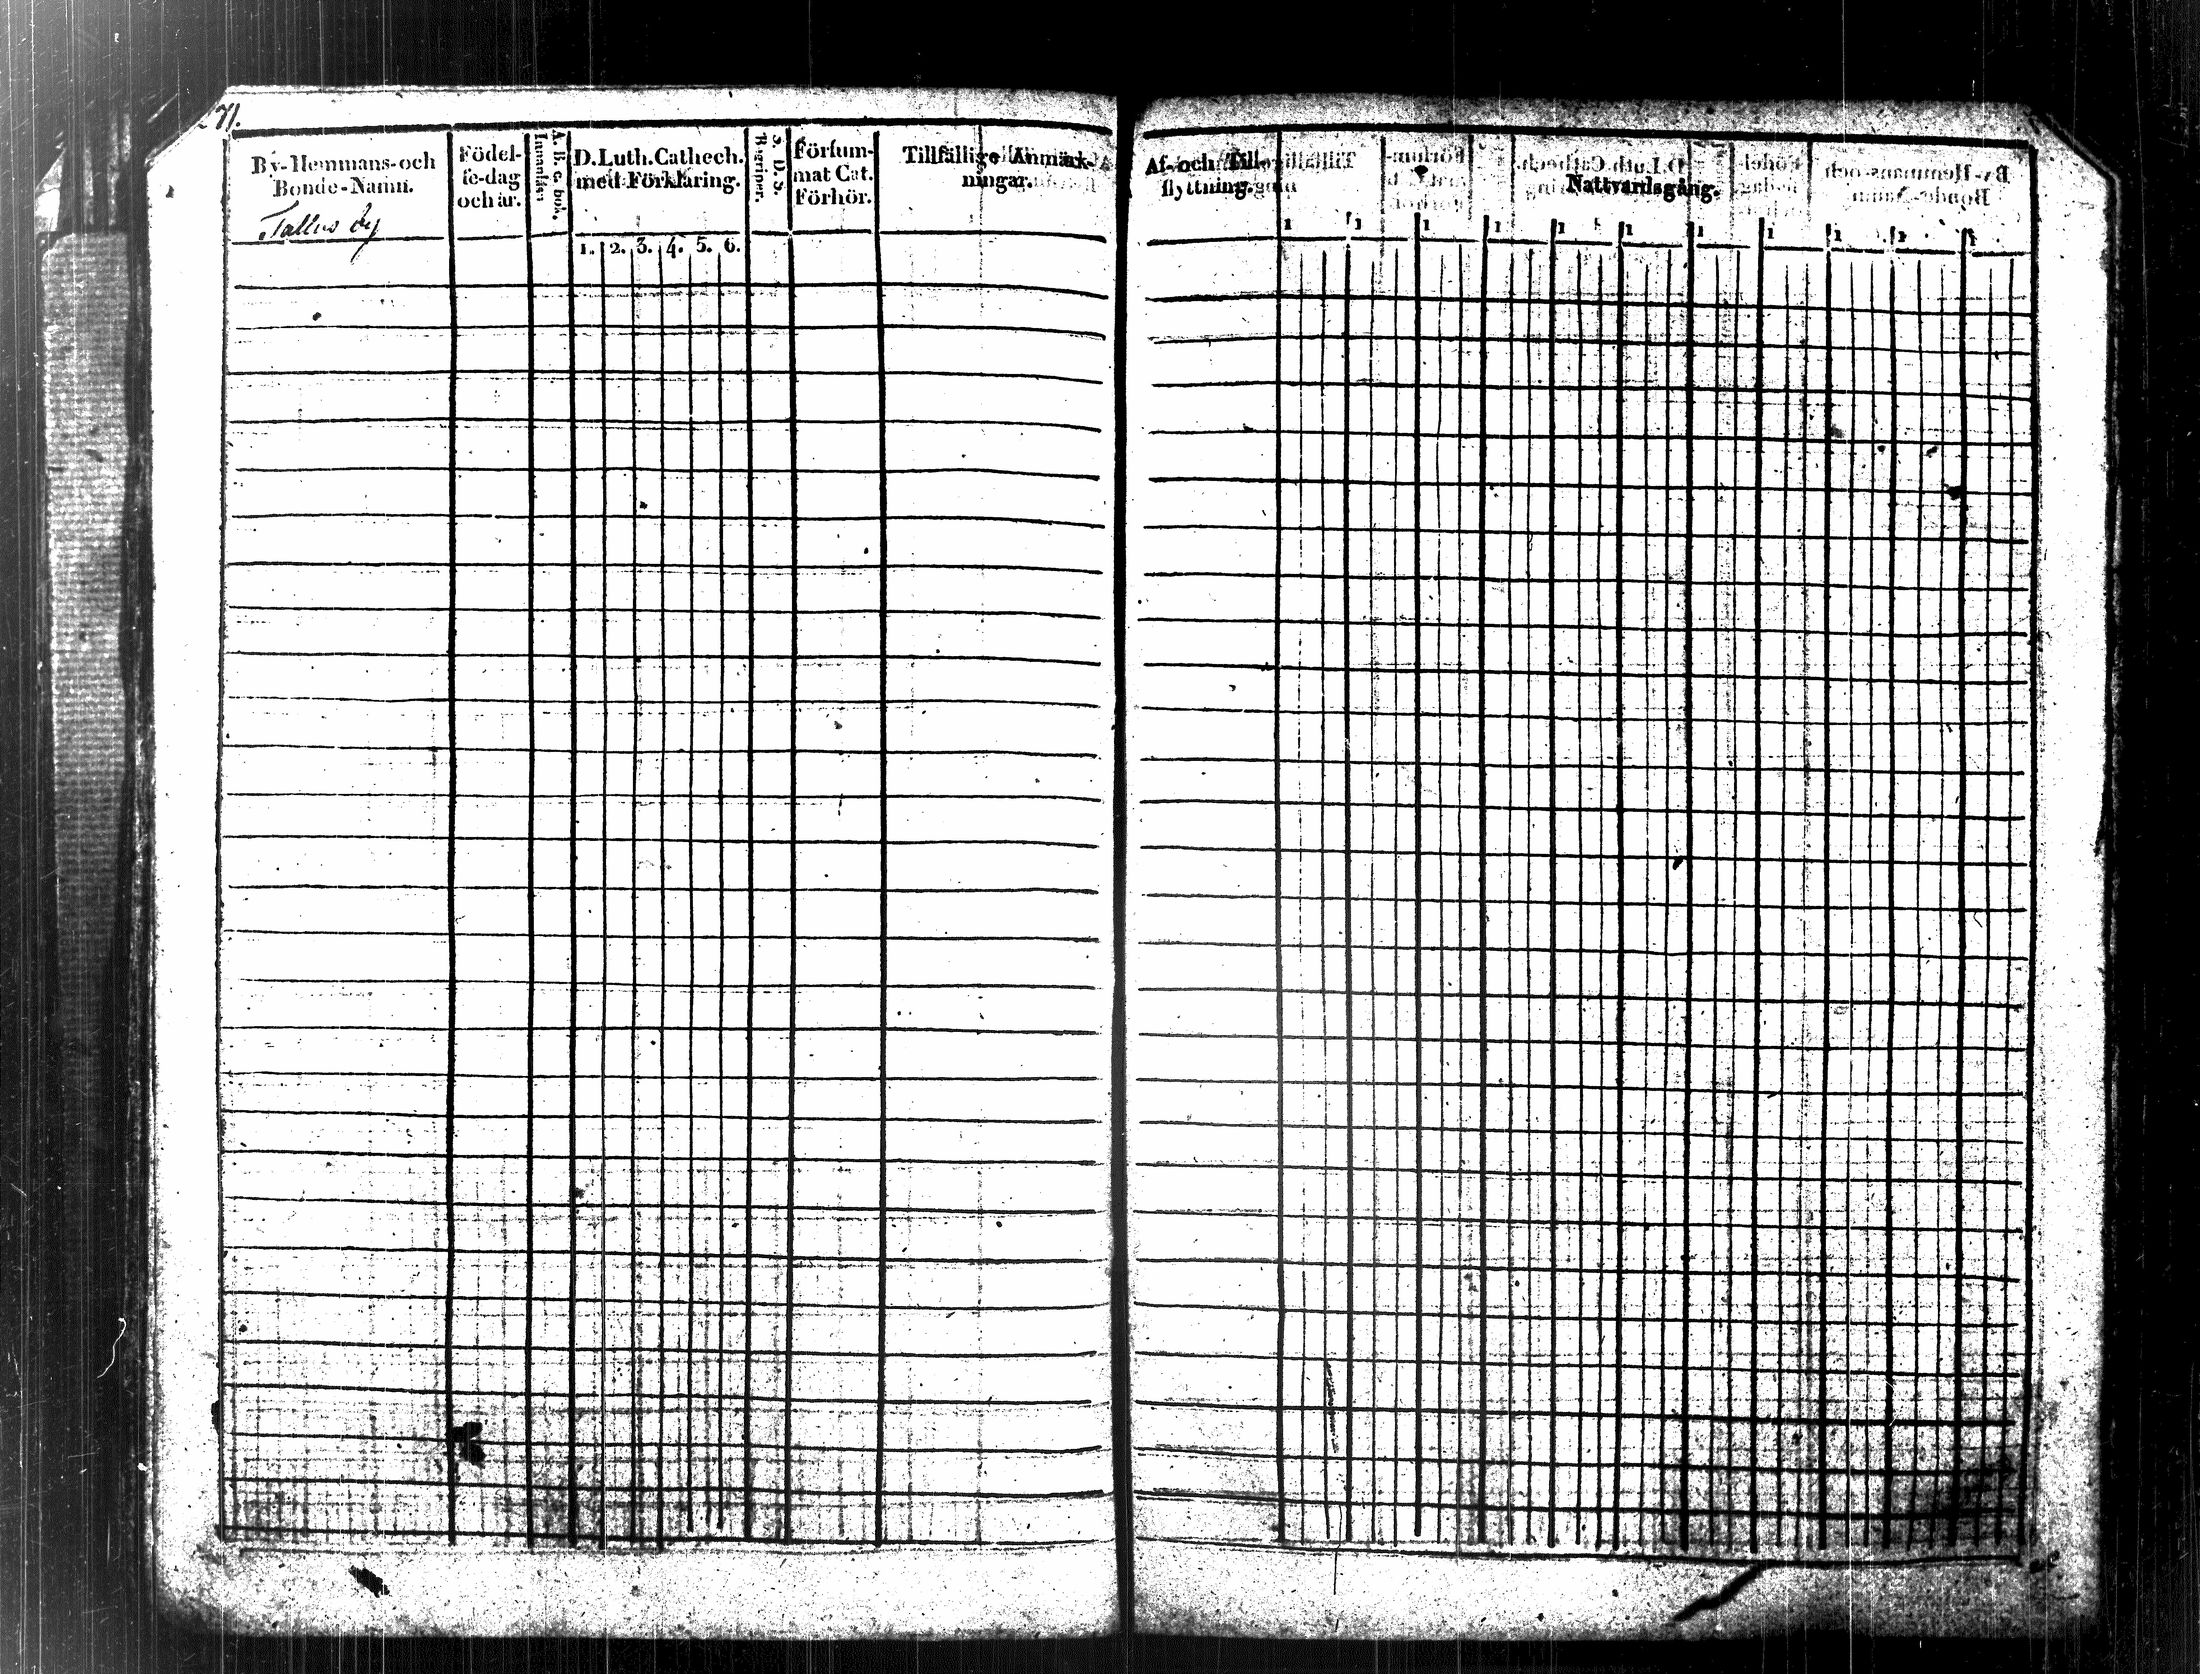 71.
By-Hemmans-och
Bonde-Namn.
Födel-
se-dag
och år.
A. B. c. bok.
Innanläsn
D. Luth. Cathech.
med Förklaring.
S. D. S.
Begriper.
Försum-
mat Cat.
Förhör.
Tillfällige Anmärk-
ningar.
by
1. 2. 3. 4. 5. 6.
Af- och Till-
flyttning.
Nattvardsgång.
1 1 1 1 1 1 1 1 1 1 1